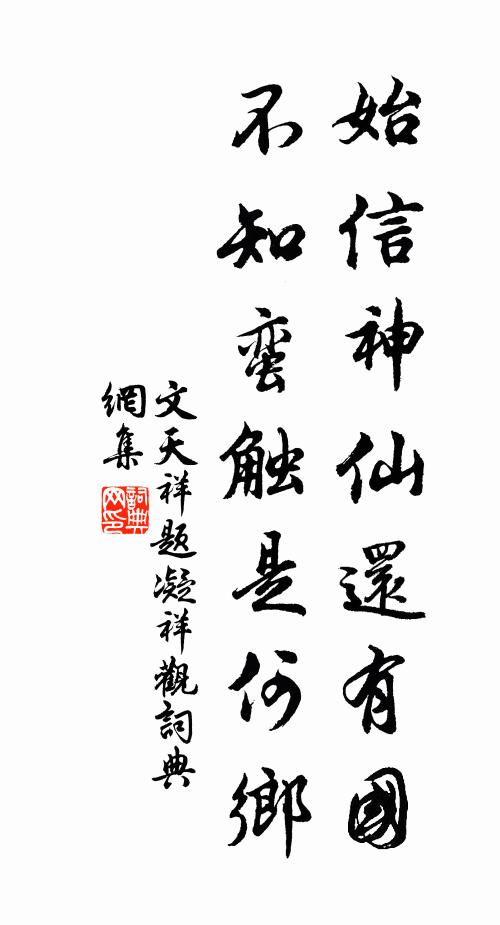 始信神仙還有國
不知蛮触是何鄉
文天祥题凝祥觀詞典
網集
詞典
网印